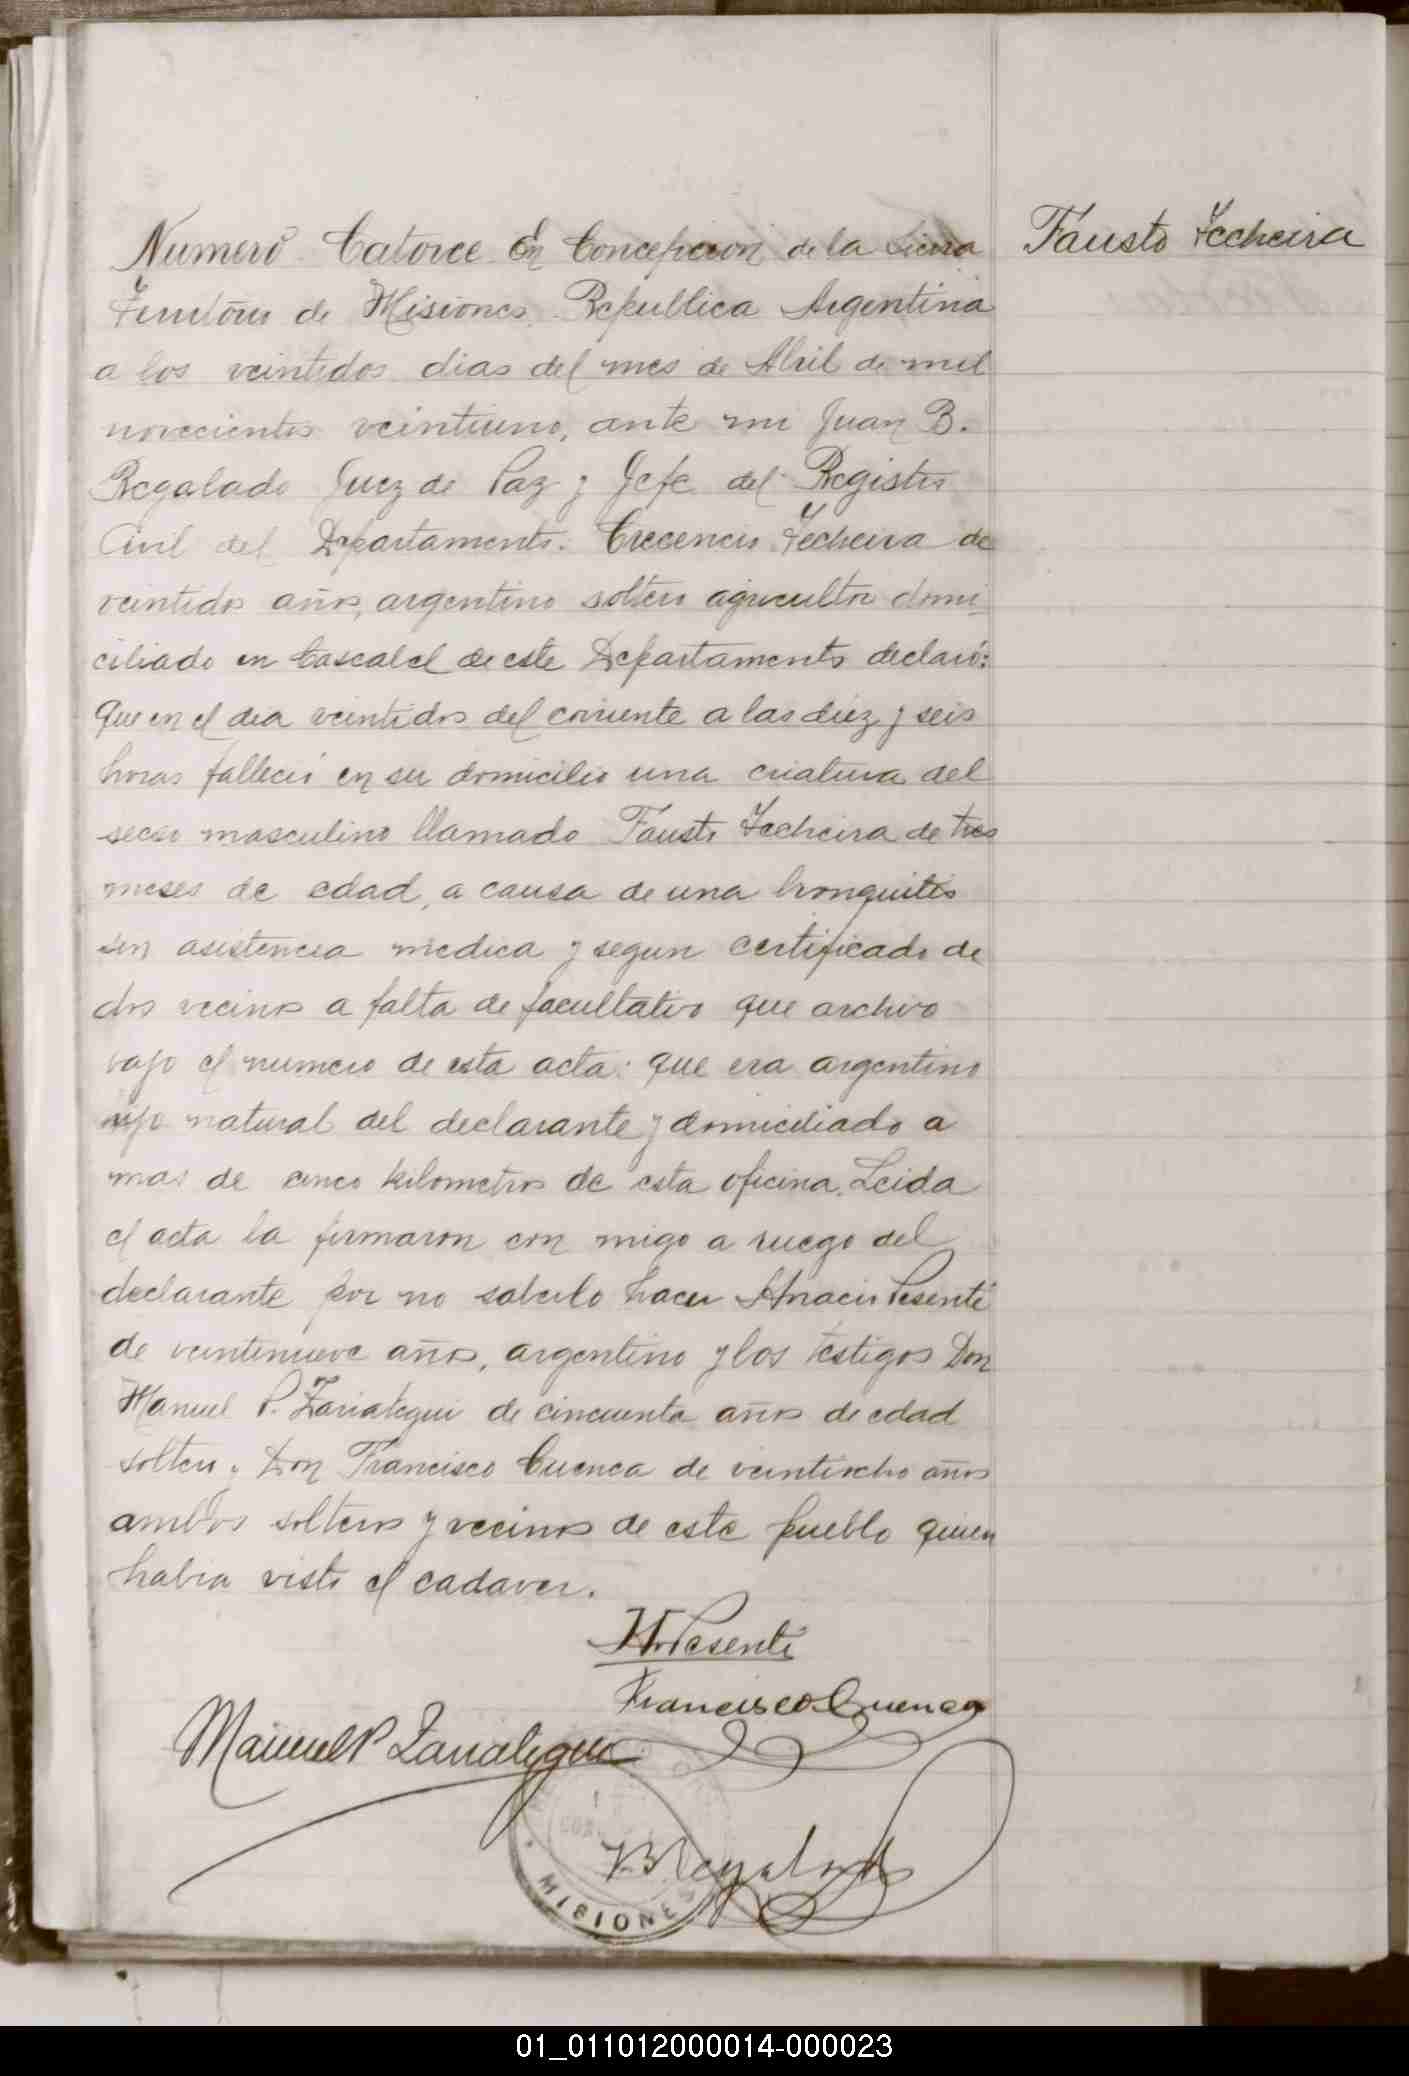 Fausto Techeira
Numero Catorce En Concepcion de la Sierra
Territorio de Misiones Republica Argentina
a los veintidos dias del mes de Abril de mil
novecientos veintiuno, ante mi Juan B.
Regalado Juez de Paz y Jefe del Registro
Civil del Departamento. Crecencio Techeira de
veintidos años, argentino soltero agricultor domi
ciliado en de este Departamento declaró:
que en el dia veintidos del corriente a las diez y seis
horas falleció en su domicilio una criatura del
secso masculino llamado Fausto Techeira de tres
meses de edad, a causa de una bronquitis
sin asistencia medica y segun certificado de
dos vecinos a falta de facultativo que archivo
bajo el numero de esta acta: que era argentino
hijo natural del declarante y domiciliado a
mas de cinco kilometros de esta oficina. Leida
el acta la firmaron con migo a ruego del
declarante por no saberlo hacer Pesenti
de veintinueve años, argentino y los testigos Don
Manuel P. Zariategui de cincuenta años de edad
soltero y Don Francisco Cuenca de veintiocho años
ambos solteros y vecinos de este pueblo quien
habia visto el cadaver.
Pesenti
Francisco Cuenca
Manuel P Zariategui
Regalado
MISIONES
01_011012000014-000023